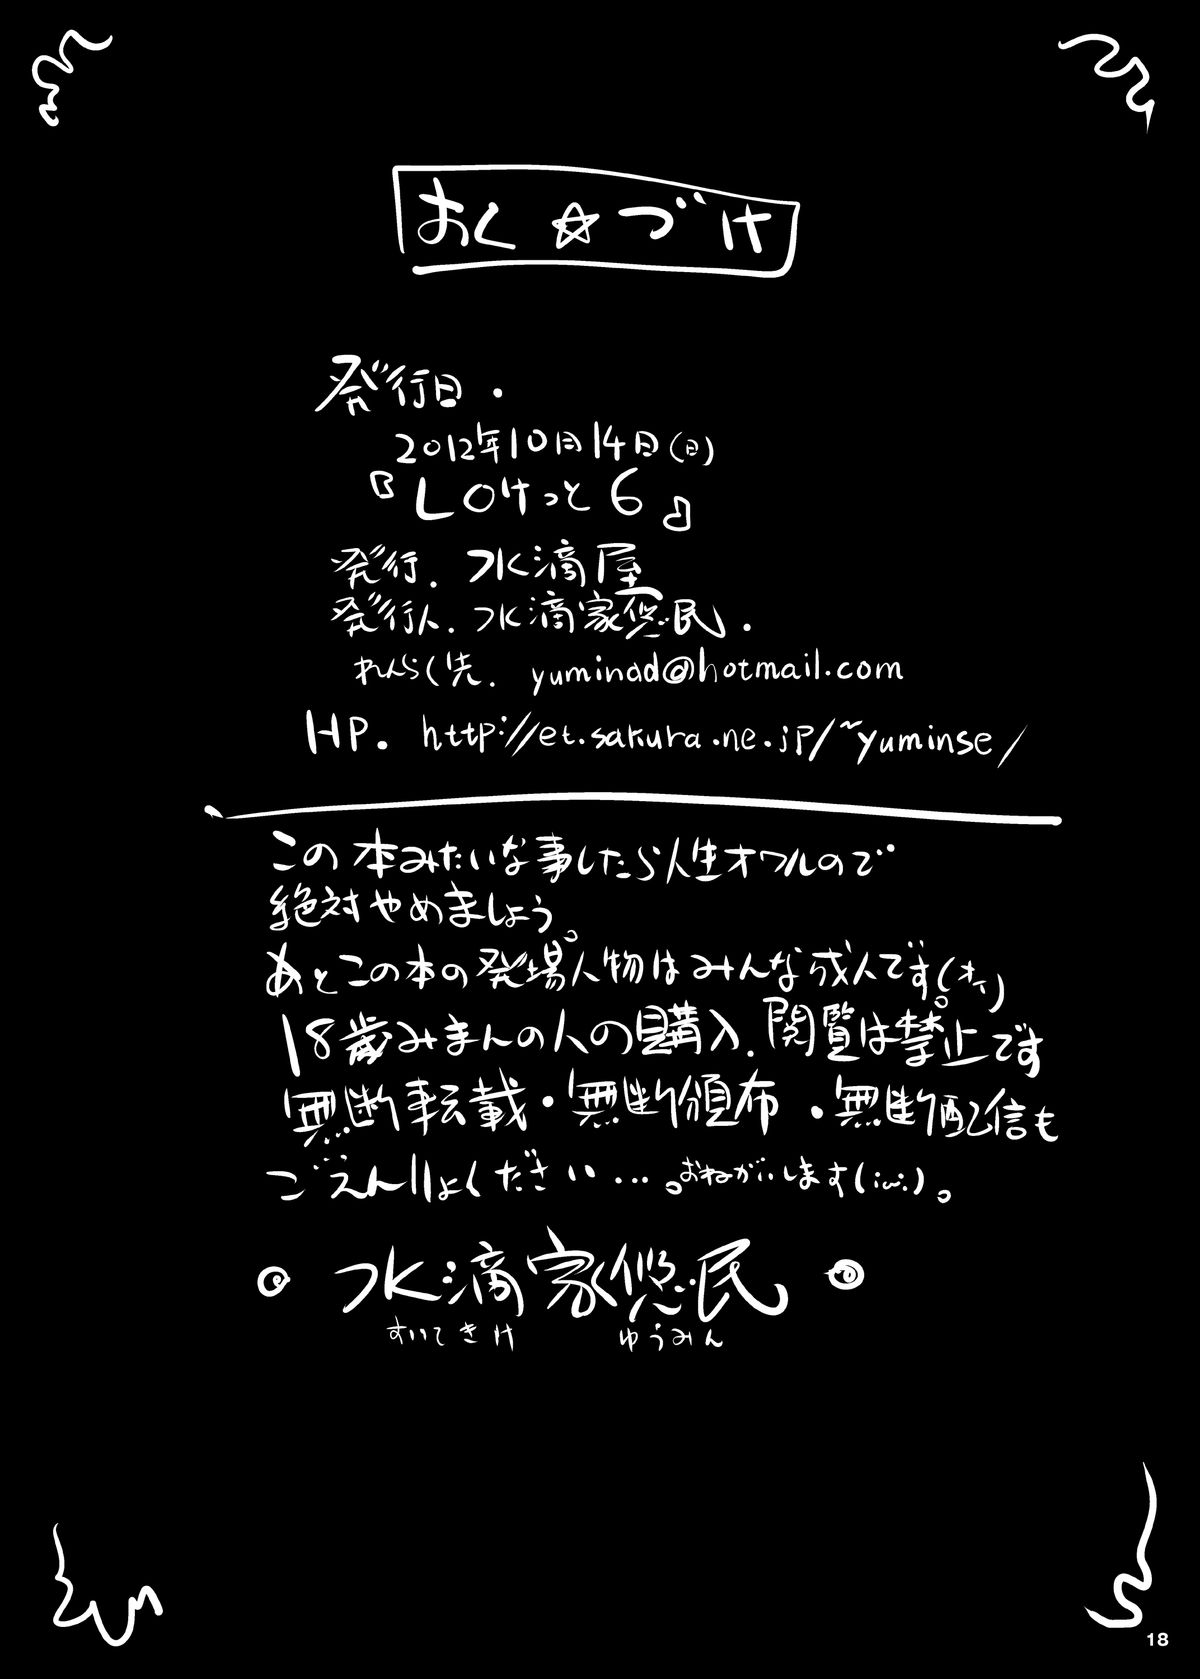 おく☆づけ
発行日.
2012年10月14日(日)
『LOけっと6』
発行. 水滴屋
発行人. 水滴家悠民.
れんらく先. yuminad@hotmail.com
HP. http://et.sakura.ne.jp/~yuminse/
この本みたいな事したら人生オワルので
絶対やめましょう。
あとこの本の登場人物はみんな成人です(オイ)。
18歳みまんの人の購入.閲覧は禁止です
無断転載・無断頒布・無断配信も
ごえんりょください…。おねがいします(;ω;)。
◎ 水滴家悠民 ◎
すいてきけ ゆうみん
18